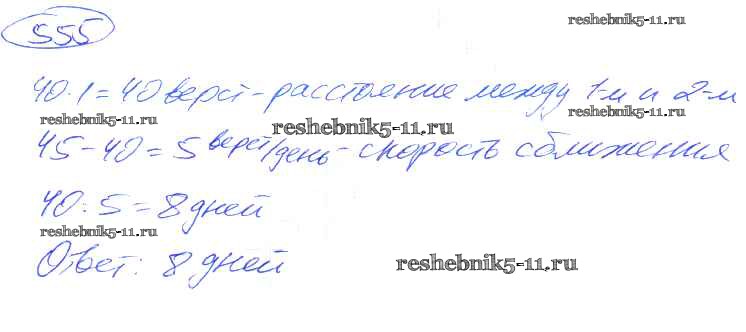 555
reshebnik5-11.ru
40·1=40 верст - расстояние между 1-м и 2-м
reshebnik5-11.ru
reshebnik5-11.ru
reshebnik5-11.ru
45-40=5 верст/день - скорость сближения
40:5=8 дней
reshebnik5-11.ru
Ответ: 8 дней
reshebnik5-11.ru